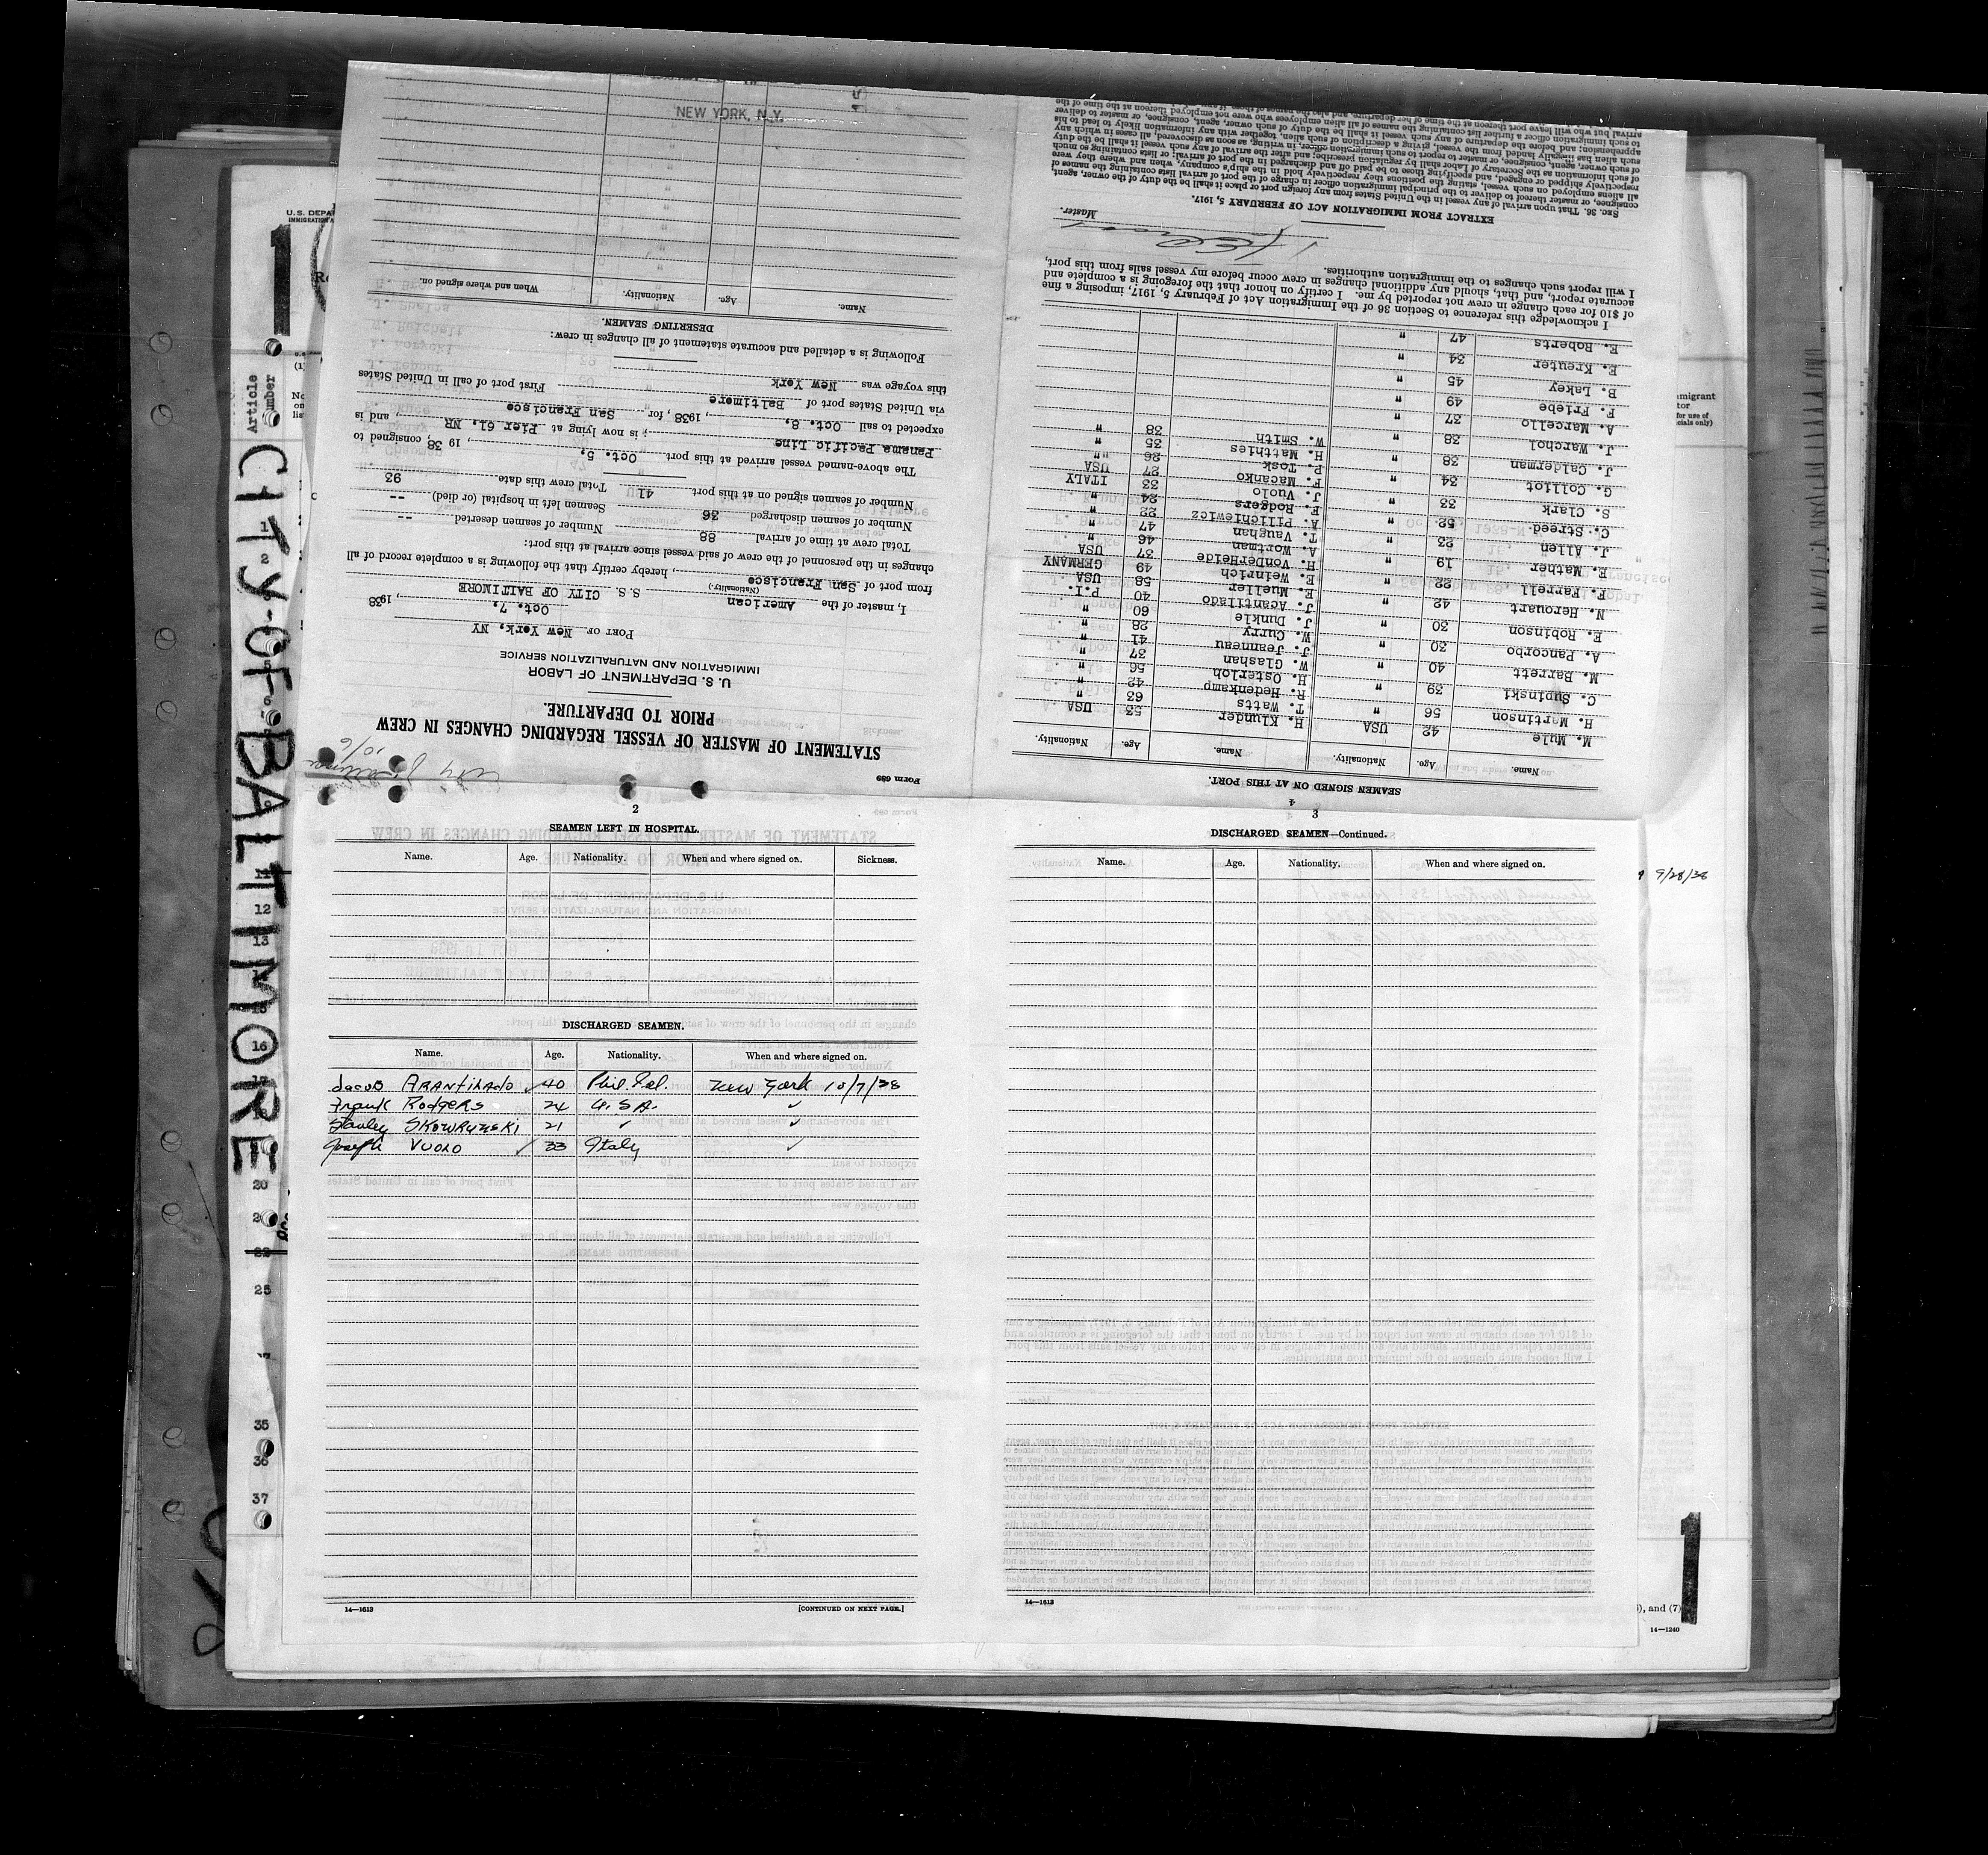 CITY OF BALTIMORE
Article
Form 689
City of Baltimore
10/6
STATEMENT OF MASTER OF VESSEL REGARDING CHANGES IN CREW
PRIOR TO DEPARTURE.
U. S. DEPARTMENT OF LABOR
IMMIGRATION AND NATURALIZATION SERVICE
PORT OF New York, NY
Oct. 7, , 1938
I, master of the American S.S. CITY OF BALTIMORE
(Nationality)
from port of San Francisco, hereby certify that the following is a complete record of all
changes in the personnel of the crew of said vessel since arrival at this port:
Total crew at time of arrival 88 Number of seamen deserted --
Number of seamen discharged 36 Seamen left in hospital (or died) --
Number of seamen signed on at this port 41 Total crew this date 93
The above-named vessel arrived at this port Oct. 5, , 19 38, consigned to
Panama Pacific Line ; is now lying at Pier 61, NR, and is
expected to sail Oct. 8, , 1938, for San Francisco
via United States port of Baltimore First port of call in United States
this voyage was New York
Following is a detailed and accurate statement of all changes in crew:
DESERTING SEAMEN.
Name. Age. Nationality. When and where signed on.
NEW YORK, N.Y.
4
SEAMEN SIGNED ON AT THIS PORT.
Name. Age. Nationality. Name. Age. Nationality.
M. Mule 42 USA H. Klunder 53 USA
H. Martinson 56 " T. Watts 63 "
C. Supinski 39 " R. Hedenkamp 42 "
M. Barrett 40 " H. Osterloh 56 "
A. Pancorbo 30 " W. Glashan 37 "
E. Robinson 30 " J. Jeanneau 41 "
N. Herouart 42 " W. Curry 28 "
F. Farrell 22 " J. Dunkle 60 "
E. Mather 19 " J. Acantilado 40 P.I.
J. Allen 23 " E. Mueller 58 USA
C. Streed 52 " E. Weinrich 49 GERMANY
S. Clark 33 " H. VonDerHeide 37 USA
G. Colliot 34 " A. Wortman 46 "
J. Calderman 38 " T. Vaughan 47 "
J. Warchol 38 " A. Pilichiewicz 22 "
A. Marcello 37 " F. Rodgers 24 "
F. Friebe 49 " J. Vuolo 33 ITALY
B. Lakey 45 " F. Macanko 27 USA
E. Kreuter 34 " P. Tosk 26 "
E. Roberts 47 " H. Matthies 35 "
W. Smith 38 "
I acknowledge this reference to Section 36 of the Immigration Act of February 5, 1917, imposing a fine
of $10 for each change in crew not reported by me. I certify on honor that the foregoing is a complete and
accurate report, and that, should any additional changes in crew occur before my vessel sails from this port,
I will report such changes to the immigration authorities.
Master.
EXTRACT FROM IMMIGRATION ACT OF FEBRUARY 5, 1917.
SEC. 36. That upon arrival of any vessel in the United States from any foreign port or place it shall be the duty of the owner, agent,
consignee, or master thereof to deliver to the principal immigration officer in charge of the port of arrival lists containing the names of
all aliens employed on such vessel, stating the positions they respectively hold in the ship's company, when and where they were
respectively shipped or engaged, and specifying those to be paid off and discharged in the port of arrival; or lists containing so much
of such information as the Secretary of Labor shall by regulation prescribe; and after the arrival of any such vessel it shall be the duty
of such owner, agent, consignee, or master to report to such immigration officer, in writing, as soon as discovered, all cases in which any
such alien has illegally landed from the vessel, giving a description of such alien, together with any information likely to lead to his
apprehension; and before the departure of any such vessel it shall be the duty of such owner, agent, consignee, or master to deliver
to such immigration officer a further list containing the names of all alien employees who were not employed thereon at the time of the
arrival but who will leave port thereon at the time of her departure, and also the names of those, if any,
2
SEAMEN LEFT IN HOSPITAL.
Name. Age. Nationality. When and where signed on. Sickness.
DISCHARGED SEAMEN.
Name. Age. Nationality. When and where signed on.
Jacob ARANTILADO 40 Phil. Isl. New York 10/7/38
Frank RODGERS 24 U.S.A. "
Stanley SKOWRUNSKI 21 " "
Joseph VUOLO 33 Italy "
14—1613
[CONTINUED ON NEXT PAGE.]
3
DISCHARGED SEAMEN—Continued.
Name. Age. Nationality. When and where signed on.
14—1613
9/28/38
, and (7)
14—1240
1
1
12
13
15
16
20
25
35
36
37